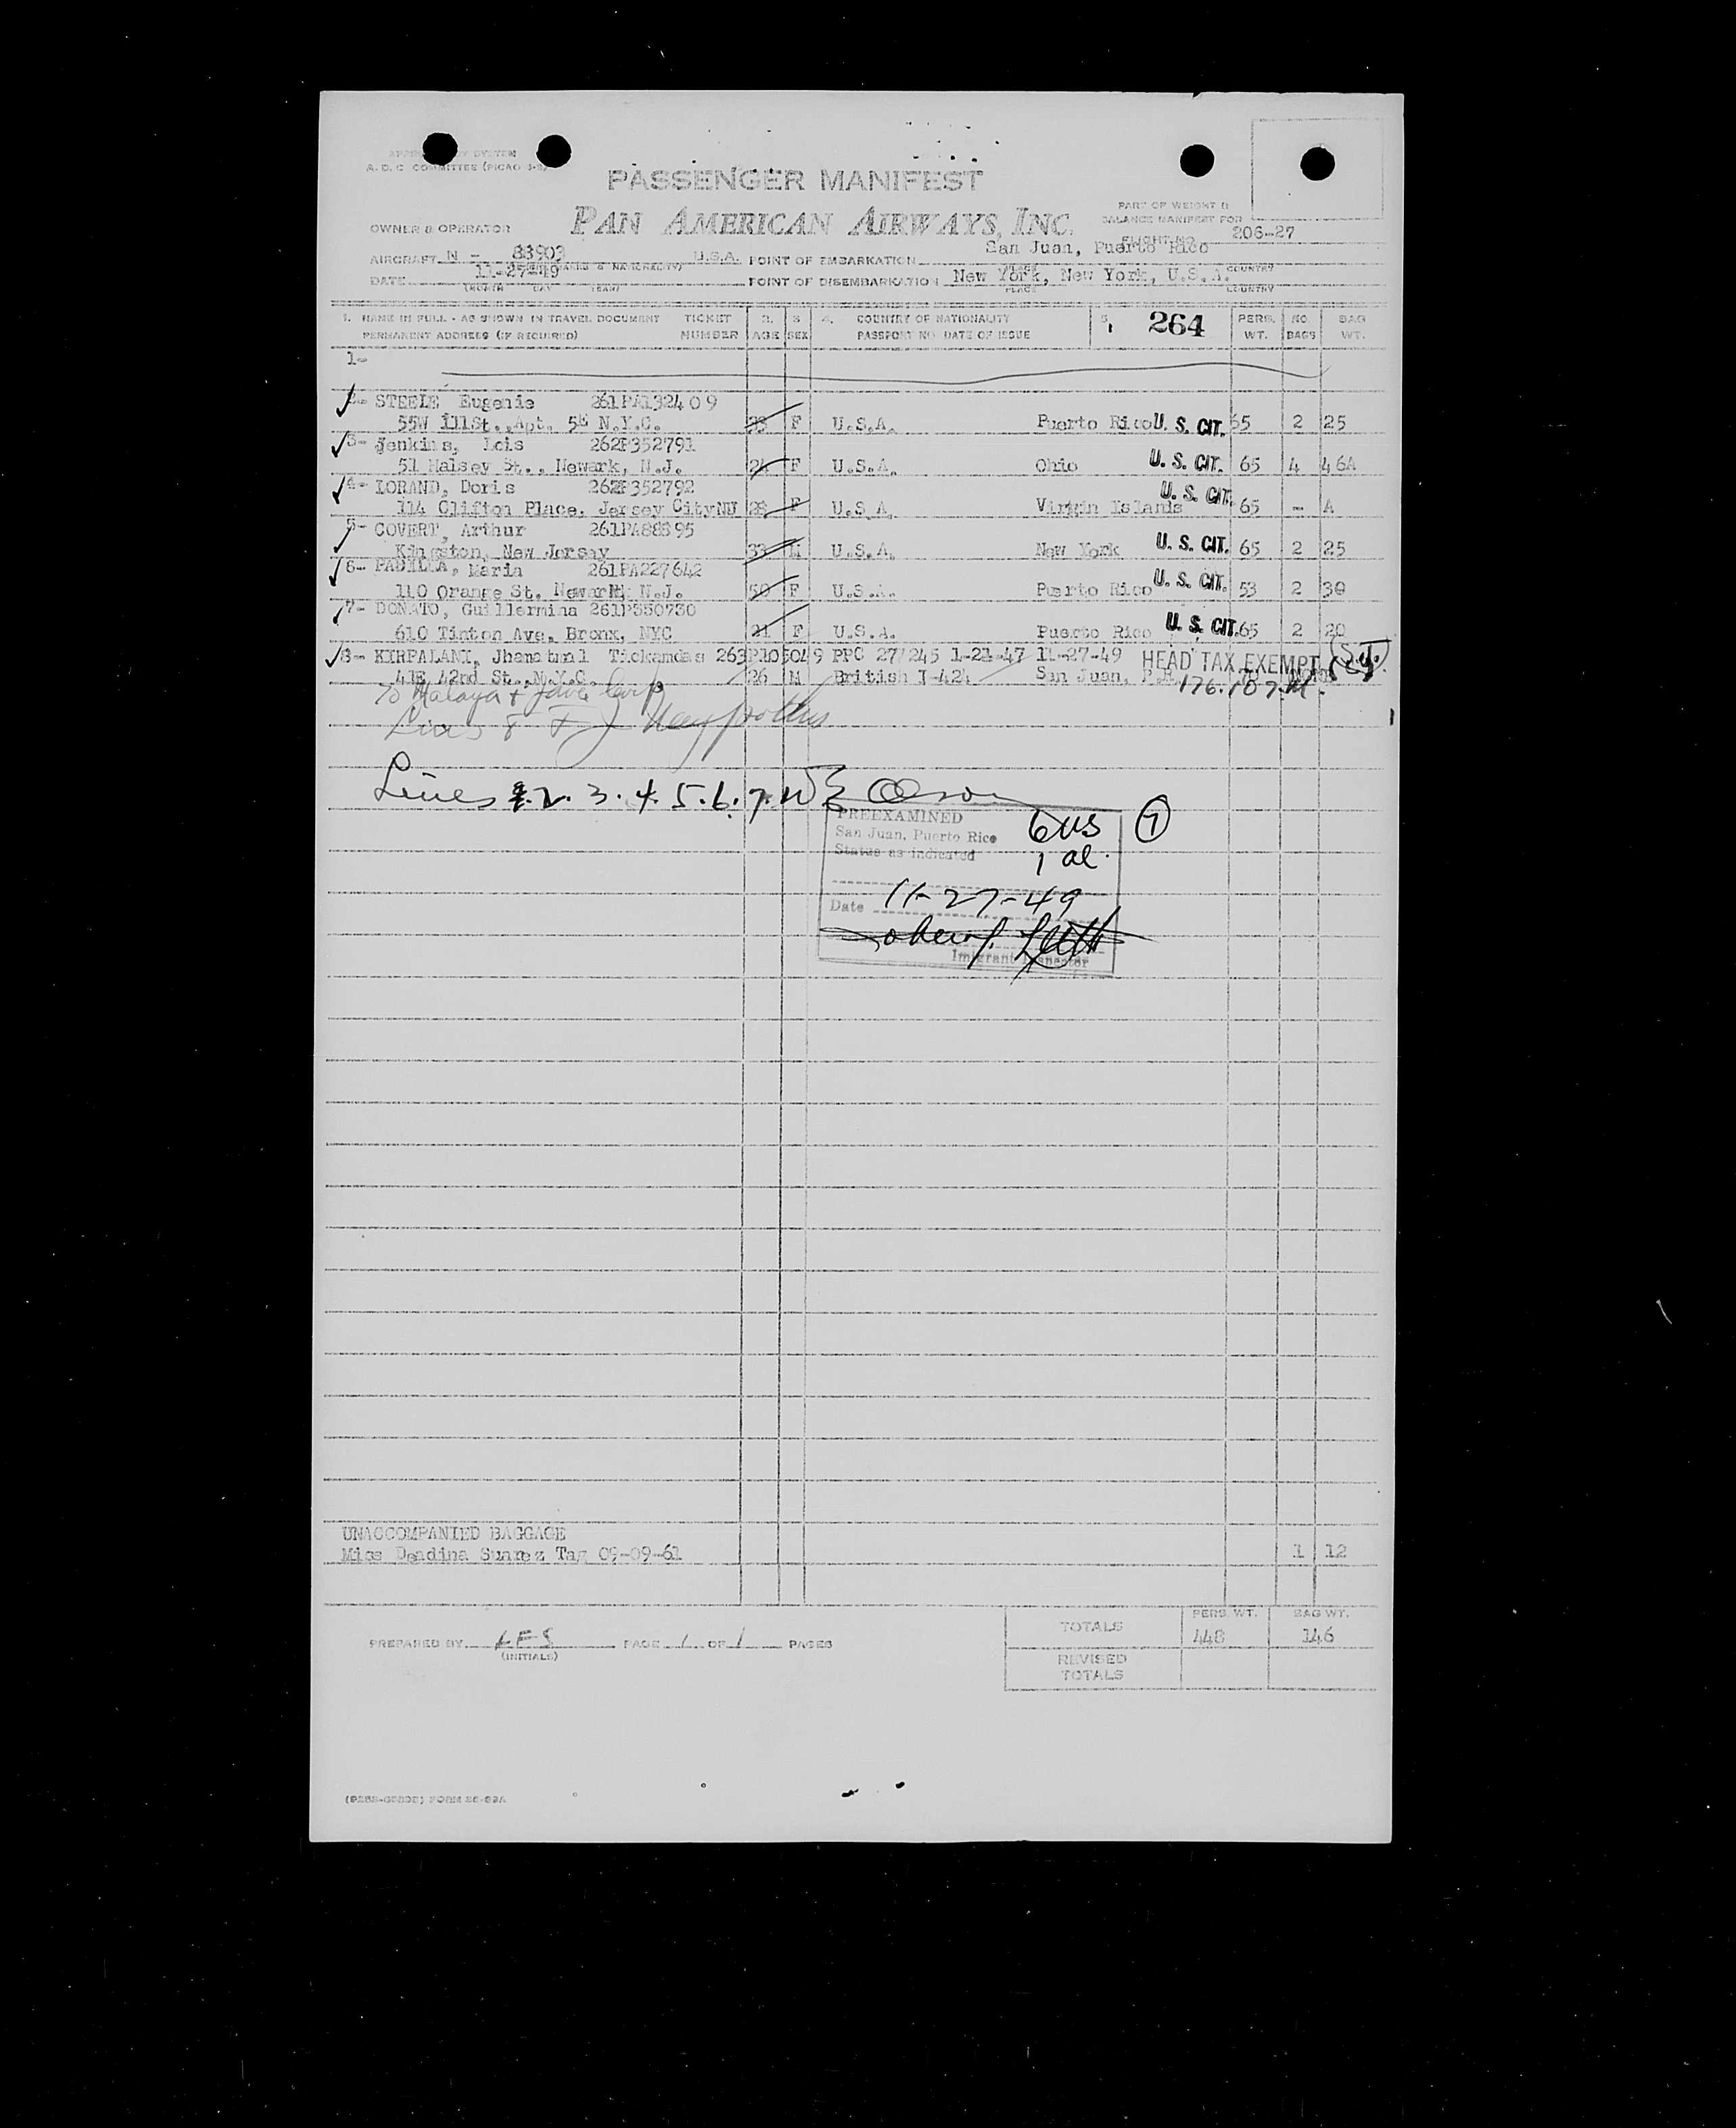 A. D. C COMMITTEE (PICAO
PASSENGER MANIFEST
PAN AMERICAN AIRWAYS, INC.
PART OF WEIGHT &
BALANCE MANIFEST FOR
OWNER & OPERATOR
FLIGHT NO. 206-27
AIRCRAFT N - 83903 U.S.A. POINT OF EMBARKATION San Juan, Puerto Rico
DATE 11-27-49 POINT OF DISEMBARKATION New York, New York, U.S.A.
(MONTH DAY YEAR) PLACE COUNTRY
1. NAME IN FULL - AS SHOWN IN TRAVEL DOCUMENT TICKET 2. 3 4. COUNTRY OF NATIONALITY 5. 264 PERS. NO. BAG
PERMANENT ADDRESS (IF REQUIRED) NUMBER AGE SEX PASSPORT NO DATE OF ISSUE WT. BAGS WT.
1-
2- STEELE Eugenie 261PA132409
55W 111St., Apt. 5E N.Y.C. F U.S.A. Puerto Rico U. S. CIT. 65 2 25
3- Jenkins, Lois 262P352791
51 Halsey St., Newark, N.J. 24 F U.S.A. Ohio U. S. CIT. 65 4 46A
4- LORAND, Doris 262P352792
114 Clifton Place, Jersey City NJ 28 F U.S.A. Virgin Islands U. S. CIT. 65 - A
5- COVERT, Arthur 261PA88895
Kingston, New Jersey 33 M U.S.A. New York U. S. CIT. 65 2 25
6- PADILLA, Maria 261PA227642
110 Orange St. Newark, N.J. 50 F U.S.A. Puerto Rico U. S. CIT. 53 2 30
7- DONATO, Guillermina 261P350730
610 Tinton Ave. Bronx, NYC 21 F U.S.A. Puerto Rico U. S. CIT. 65 2 20
8- KIRPALANI, Jhamatmal Tickamdas 263P105049 PPC 27/245 1-21-47 11-27-49 HEAD TAX EXEMPT (S.J.)
41E 42nd St., N.Y.C. 26 M British I-424 San Juan, P.R. 176.107
To Malaya + Java Corp
Lines 8
Lines 2. 3. 4. 5. 6. 7. Olson
PREEXAMINED
San Juan, Puerto Rico 6 US 7
Status as indicated 1 al.
Date 11-27-49
Immigrant Inspector
UNACCOMPANIED BAGGAGE
Miss Deadina Suarez Tag 09-09-61 1 12
PERS. WT. BAG WT.
TOTALS 448 146
PREPARED BY LFS PAGE 1 OF 1 PAGES
(INITIALS)
REVISED
TOTALS